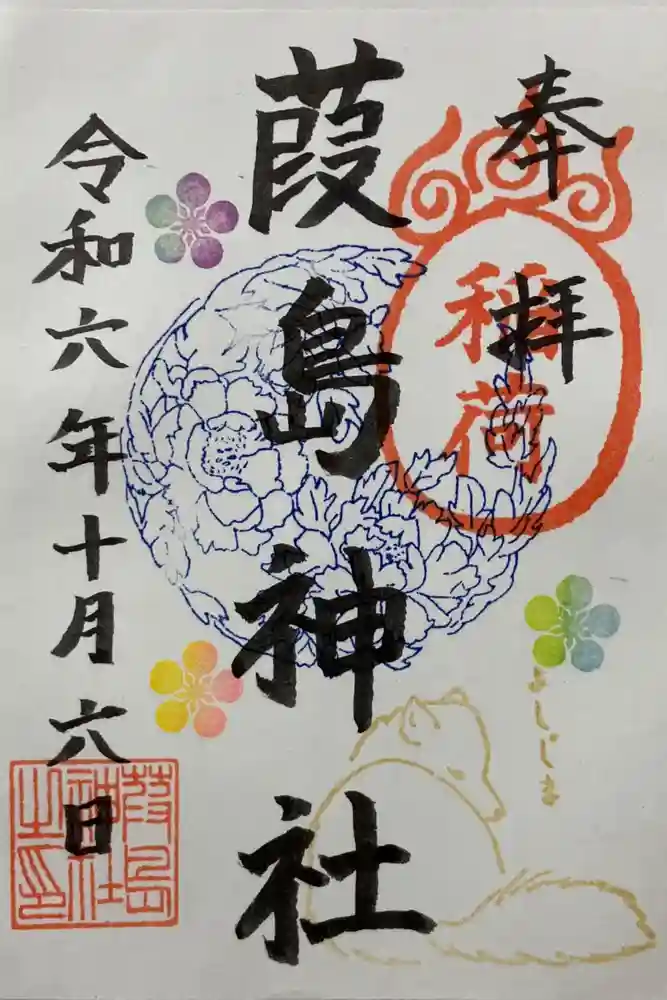 奉拝
稲荷
葭島神社
よしじま
令和六年十月六日
葭島
神社
之印